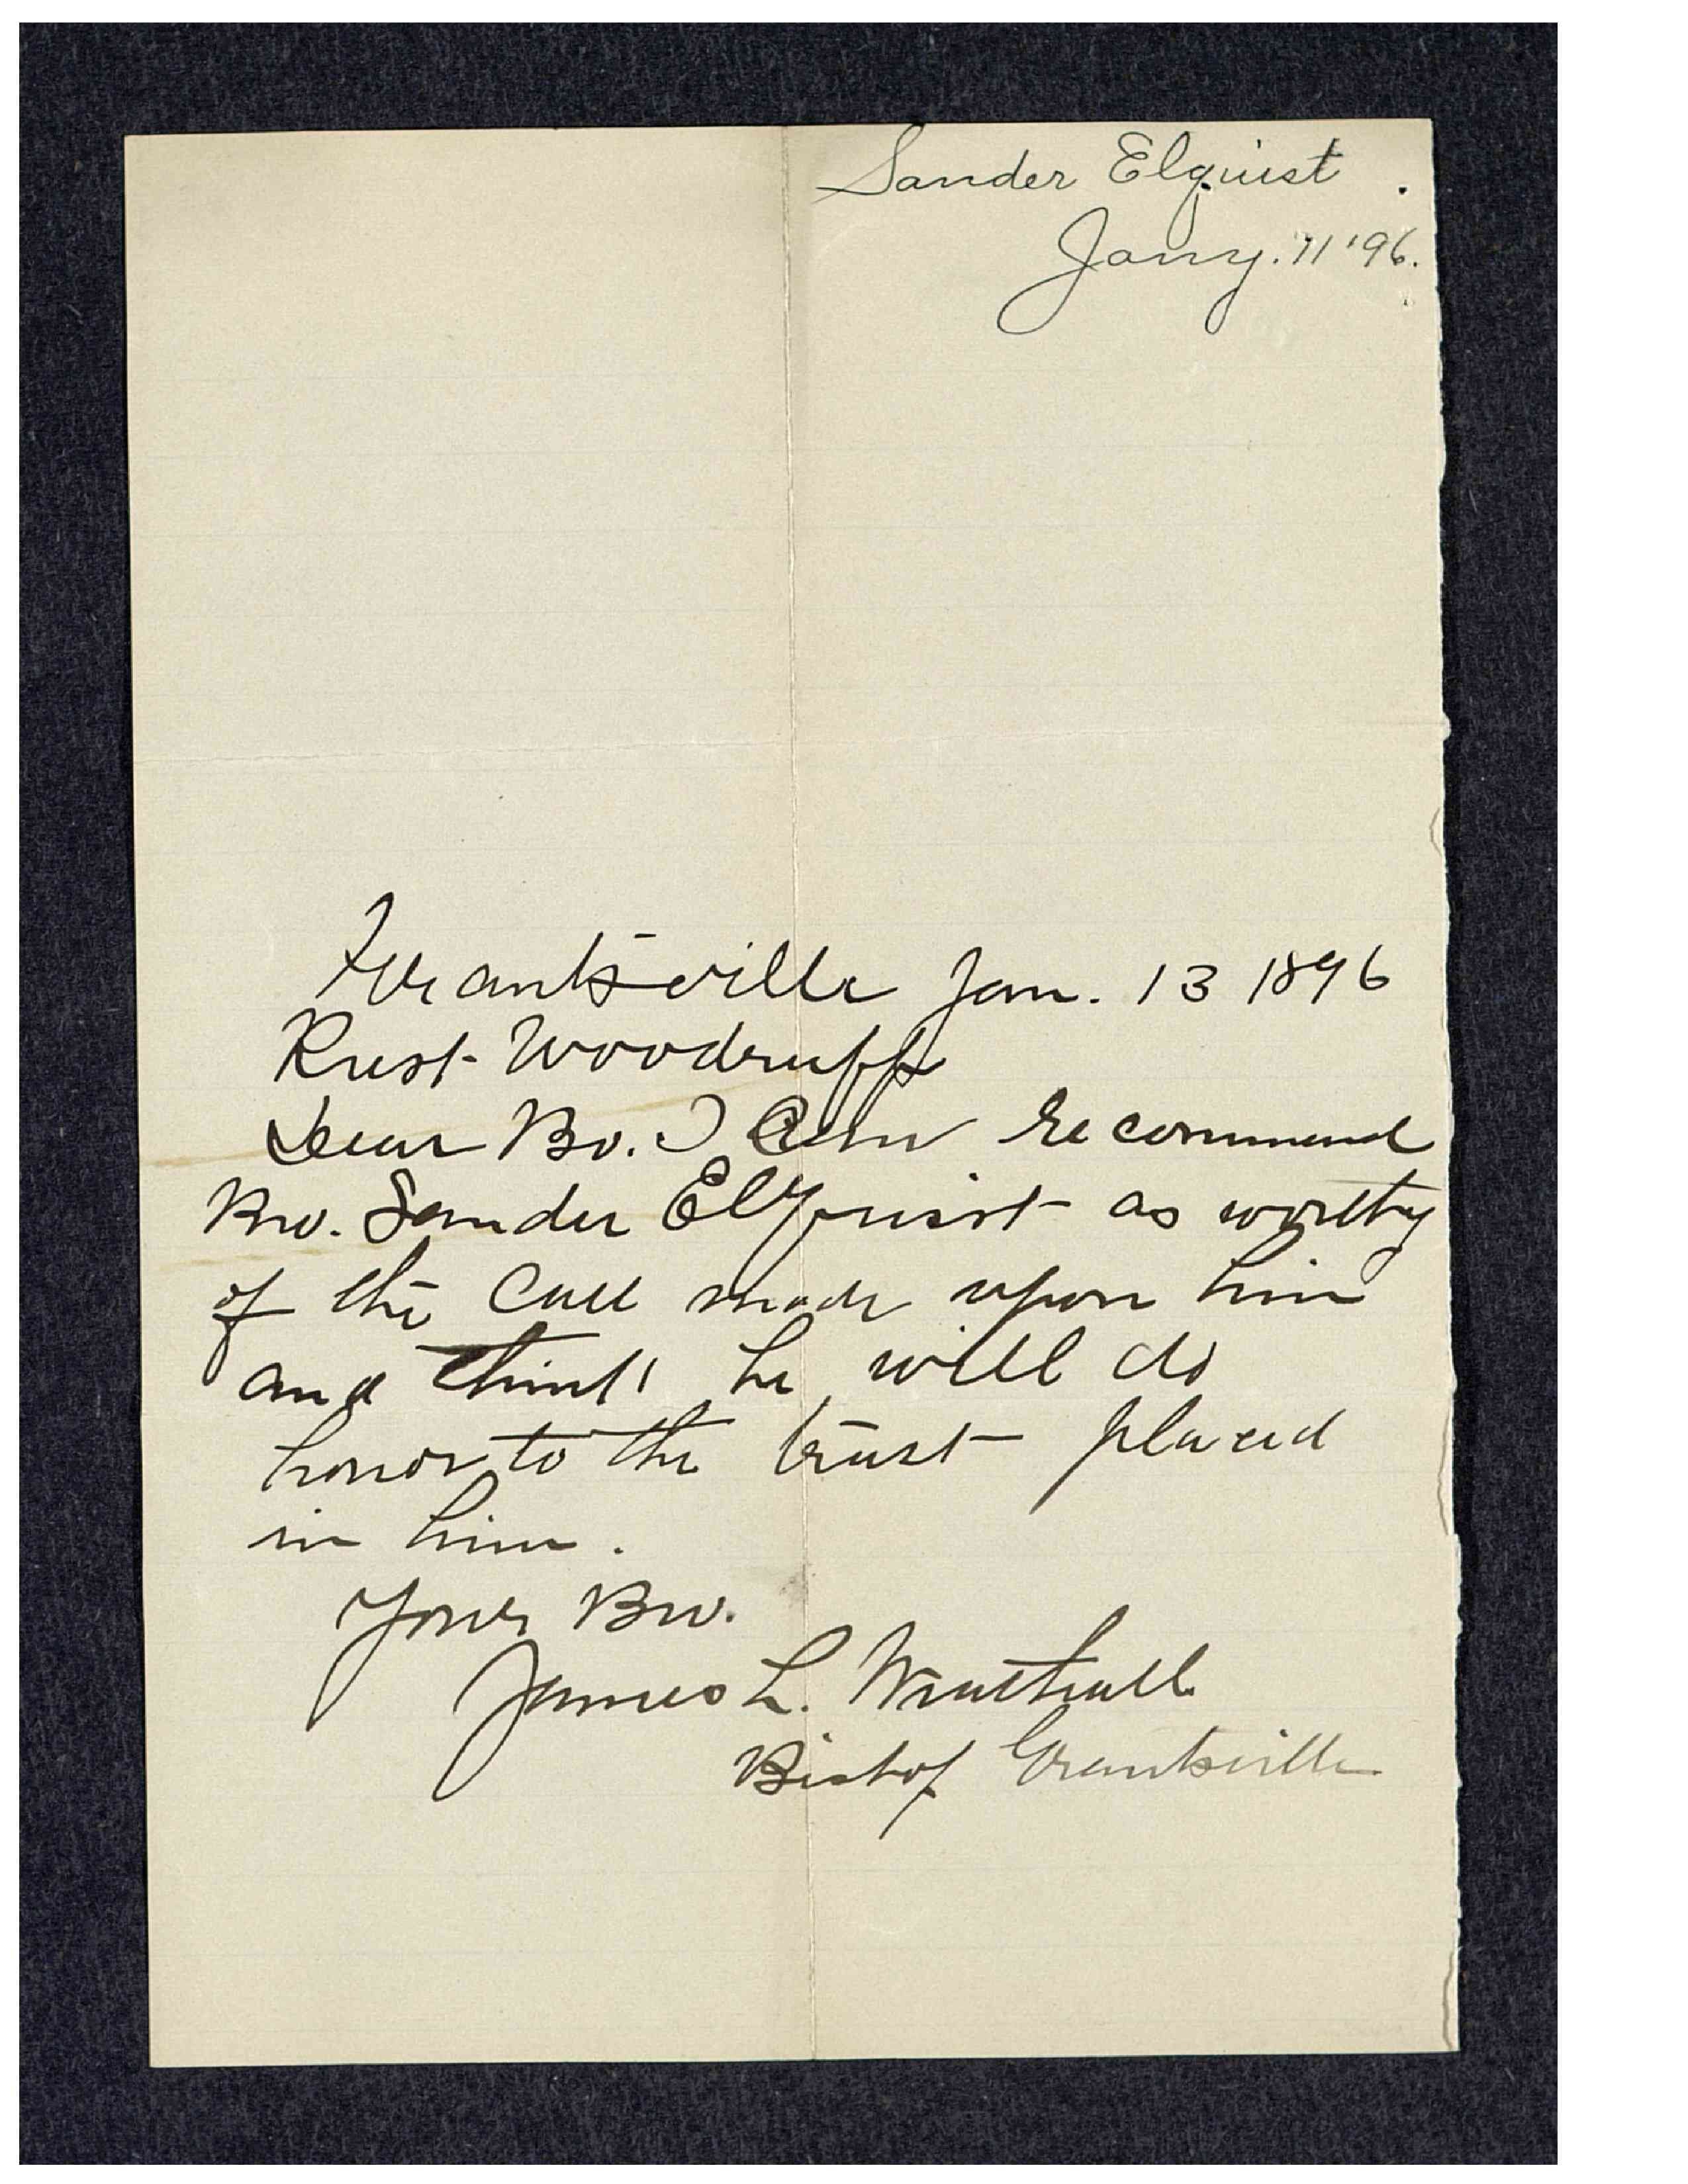 Sander Elquist.
Jany. 11 '96.
Grantsville Jan. 13 1896
Prest Woodruff
Dear Bro. I can recommend
Bro. Sander Elquist as worthy
of the call made upon him
and think he will do
honor to the trust placed
in him.
Your Bro.
James L. Wrathall
Bishop Grantsville